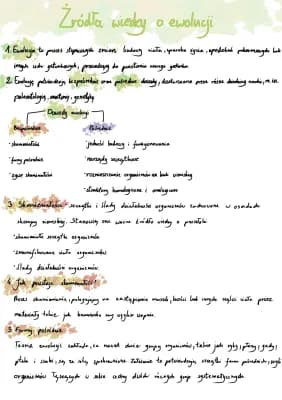 Źródła wiedzy o ewolucji
1. Ewolucja to proces stopniowych zmian budowy ciała, sposobu życia, upodobań pokarmowych lub
innych cech gatunkowych, prowadzący do powstania nowego gatunku.
2. Ewolucję potwierdzają bezpośrednie oraz pośrednie dowody, dostarczane przez różne dziedziny nauki, m.in.
paleontologię, anatomię, genetykę.
Dowody ewolucji
Bezpośrednie
Pośrednie
•skamieniałości
•jedność budowy i funkcjonowania
•formy pośrednie
•narządy szczątkowe
•żywe skamieniałości
•rozmieszczenie organizmów na kuli ziemskiej
•struktury homologiczne i analogiczne
3. Skamieniałości- szczątki i ślady działalności organizmów zachowane w osadach
skorupy ziemskiej. Stanowią one ważne źródło wiedzy o przeszłości
•skamieniałe szczątki organizmów
•zmumifikowane ciała organizmów
•ślady działalności organizmów.
4. Jak powstaje skamieniałość?
Proces skamieniania, polegający na zastąpieniu muszli, kości lub innych części ciała przez
materiały takie jak krzemionka czy węglan wapnia.
5. Formy pośrednie
Teoria ewolucji zakłada, że nawet różne grupy organizmów, takie jak ryby i płazy, gady i
ptaki i ssaki, są ze sobą spokrewnione. Założenie to potwierdzają szczątki form pośrednich, czyli
organizmów łączących w sobie cechy dwóch różnych grup systematycznych.